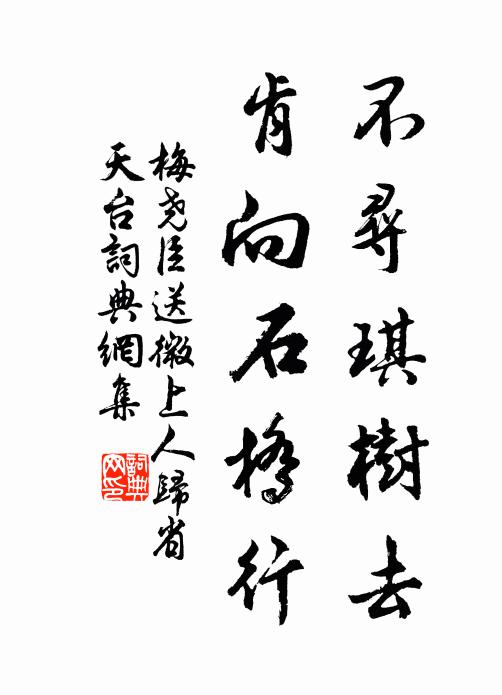 不尋琪樹去
肯向石橋行
梅堯臣送微上人歸省
天台詞典網集
詞典网印